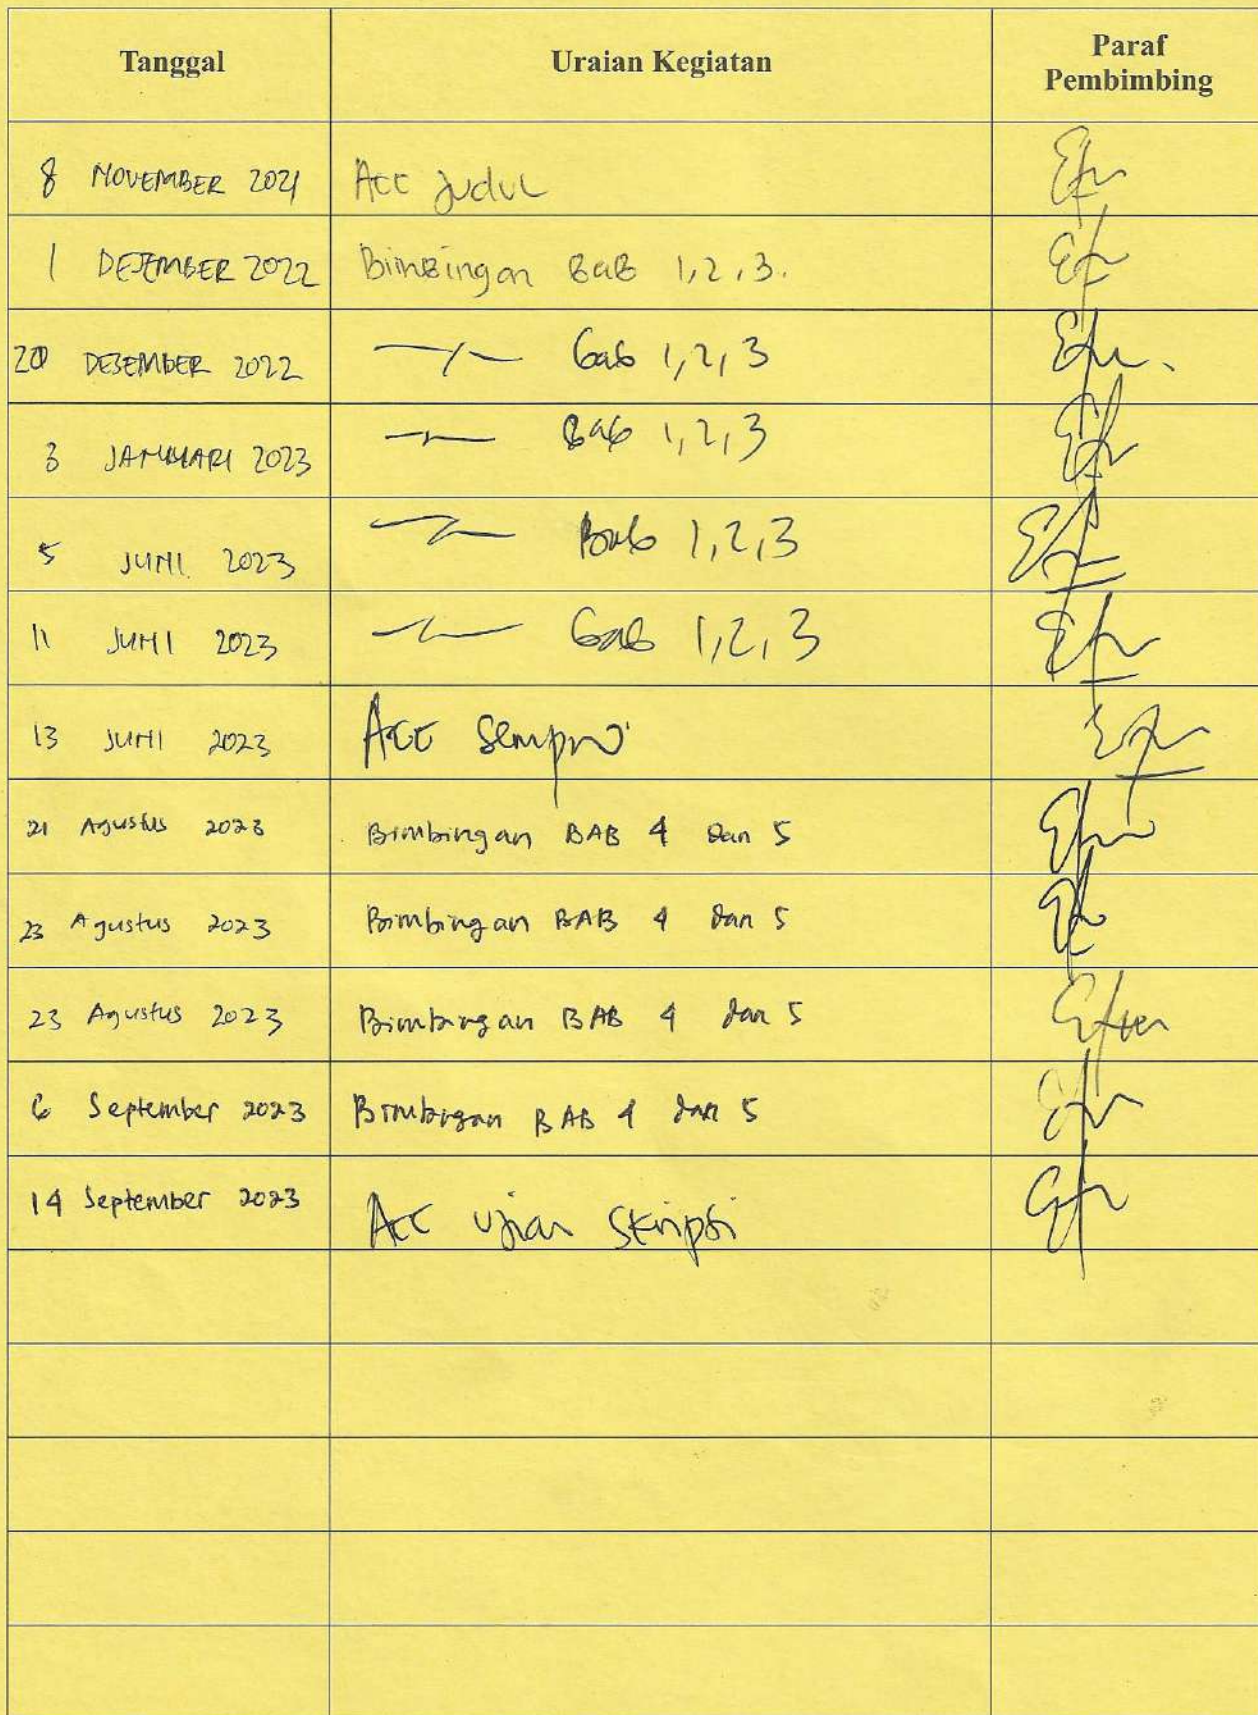 Tanggal Uraian Kegiatan Paraf Pembimbing
8 NOVEMBER 2021 Acc Judul
1 DESEMBER 2022 Bimbingan BaB 1,2,3.
20 DESEMBER 2022 —/— bab 1,2,3
3 JANUARI 2023 —/— Bab 1,2,3
5 JUNI 2023 —/— Bab 1,2,3
11 JUNI 2023 —/— bab 1,2,3
13 JUNI 2023 Acc Sempro
21 Agustus 2023 Bimbingan BAB 4 dan 5
23 Agustus 2023 Bimbingan BAB 4 dan 5
23 Agustus 2023 Bimbingan BAB 4 dan 5
6 September 2023 Bimbingan BAB 4 dan 5
14 September 2023 Acc Ujian Skripsi